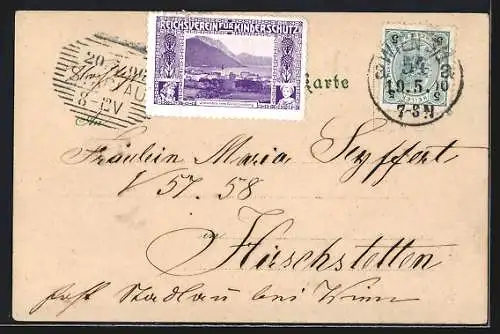 REICHSVEREIN FÜR KINDERSCHUTZ
Karte
An
20
8-12V
5 5
54
10.5.10
7-8N
Fräulein Maria Seyffert
V 57. 58
in Hirschstetten
Post Stadlau bei Wien